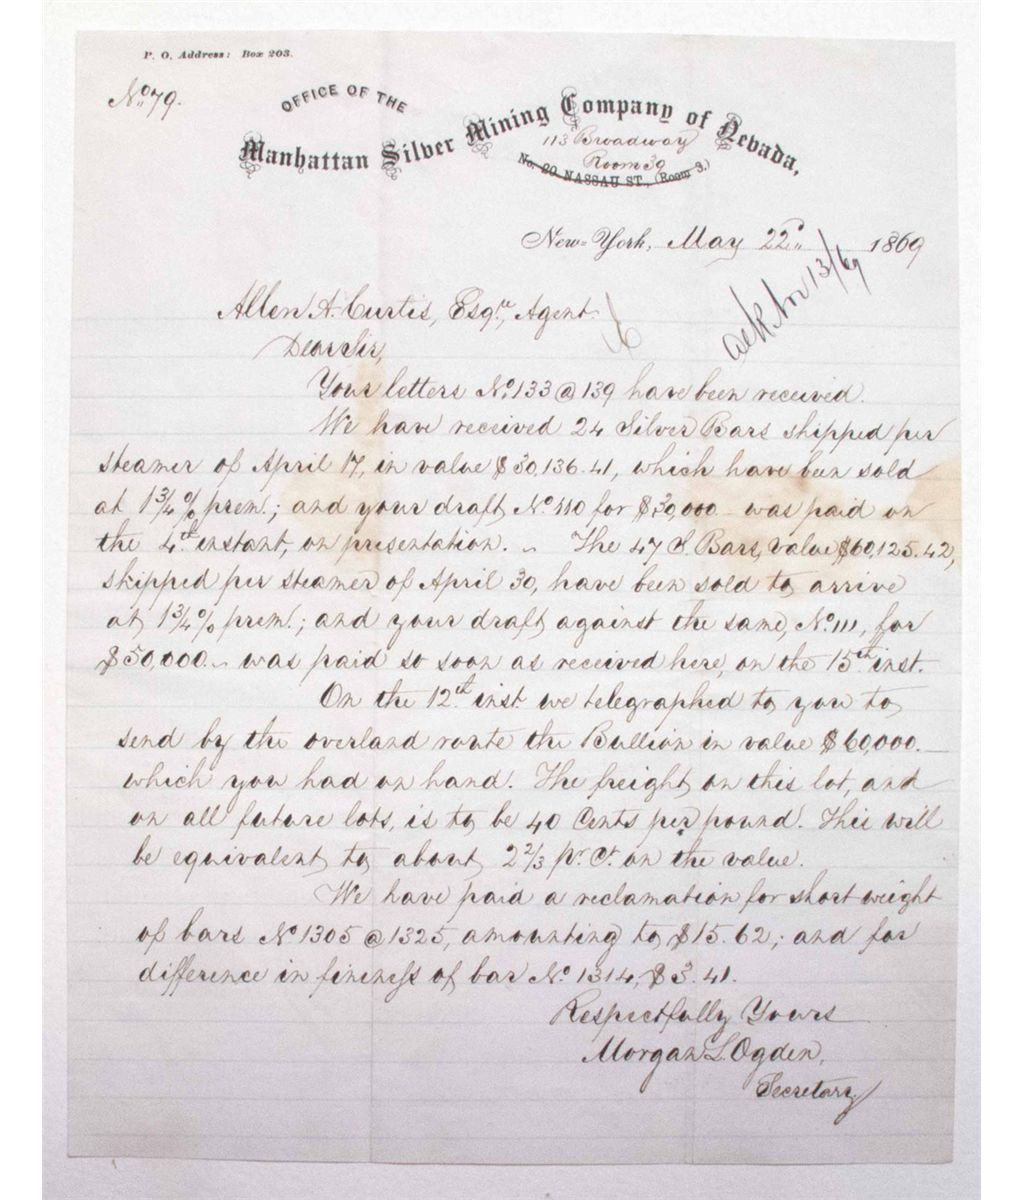 P. O. Address: Box 203.
No. 79.
OFFICE OF THE
Manhattan Silver Mining Company of Nevada,
113 Broadway
Room 39
No. 20 NASSAU ST., (Room 3.)
New-York, May 22d 1869
ack Nov 13/69
Allen A. Curtis, Esqre, Agent.
Dear Sir,
Your letters No. 133 @ 139 have been received.
We have received 24 Silver Bars shipped per
steamer of April 17, in value $30,136.41, which have been sold
at 1 3/4 % prem.; and your draft No. 110 for $30,000 – was paid on
the 4th instant, on presentation. – The 47 S. Bars, value $60,125.42,
shipped per steamer of April 30, have been sold to arrive
at 1 3/4 % prem.; and your draft against the same, No. 111, for
$50,000 – was paid so soon as received here, on the 15th inst.
On the 12th inst we telegraphed to you to
send by the overland route the Bullion in value $60,000. –
which you had on hand. The freight on this lot, and
on all future lots, is to be 40 Cents per pound. This will
be equivalent to about 2 2/3 pr. Ct. on the value.
We have paid a reclamation for short weight
of bars No. 1305 @ 1325, amounting to $15.62; and for
difference in fineness of bar No. 1314, $3.41.
Respectfully Yours
Morgan L. Ogden,
Secretary